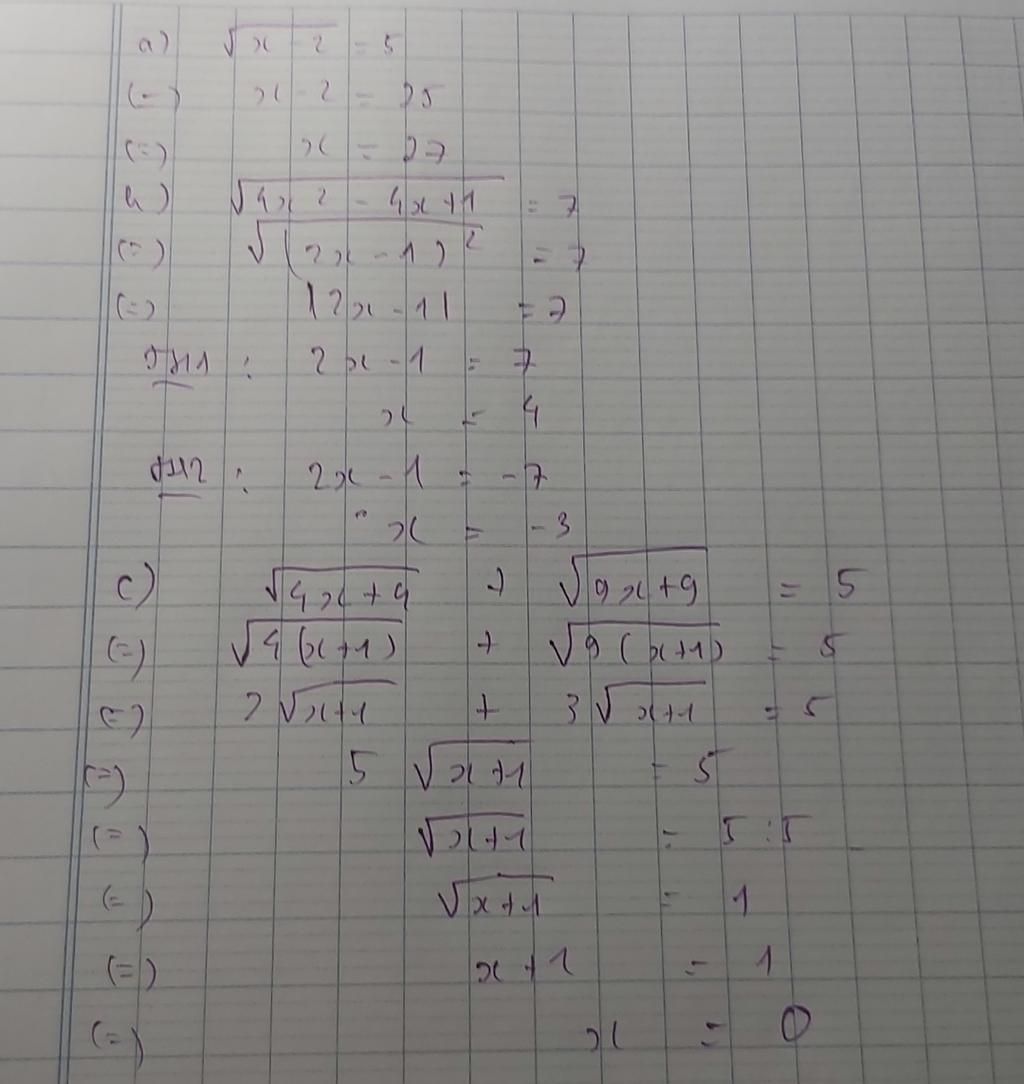 a) √(x - 2) = 5
(=) x - 2 = 25
(=) x = 27
b) √(4x² - 4x + 1) = 7
(=) √((2x - 1)²) = 7
(=) |2x - 1| = 7
TH1 : 2x - 1 = 7
x = 4
TH2 : 2x - 1 = -7
x = -3
c) √(4x + 4) + √(9x + 9) = 5
(=) √(4(x+1)) + √(9(x+1)) = 5
(=) 2√(x+1) + 3√(x+1) = 5
(=) 5 √(x+1) = 5
(=) √(x+1) = 5 : 5
(=) √(x+1) = 1
(=) x + 1 = 1
(=) x = 0